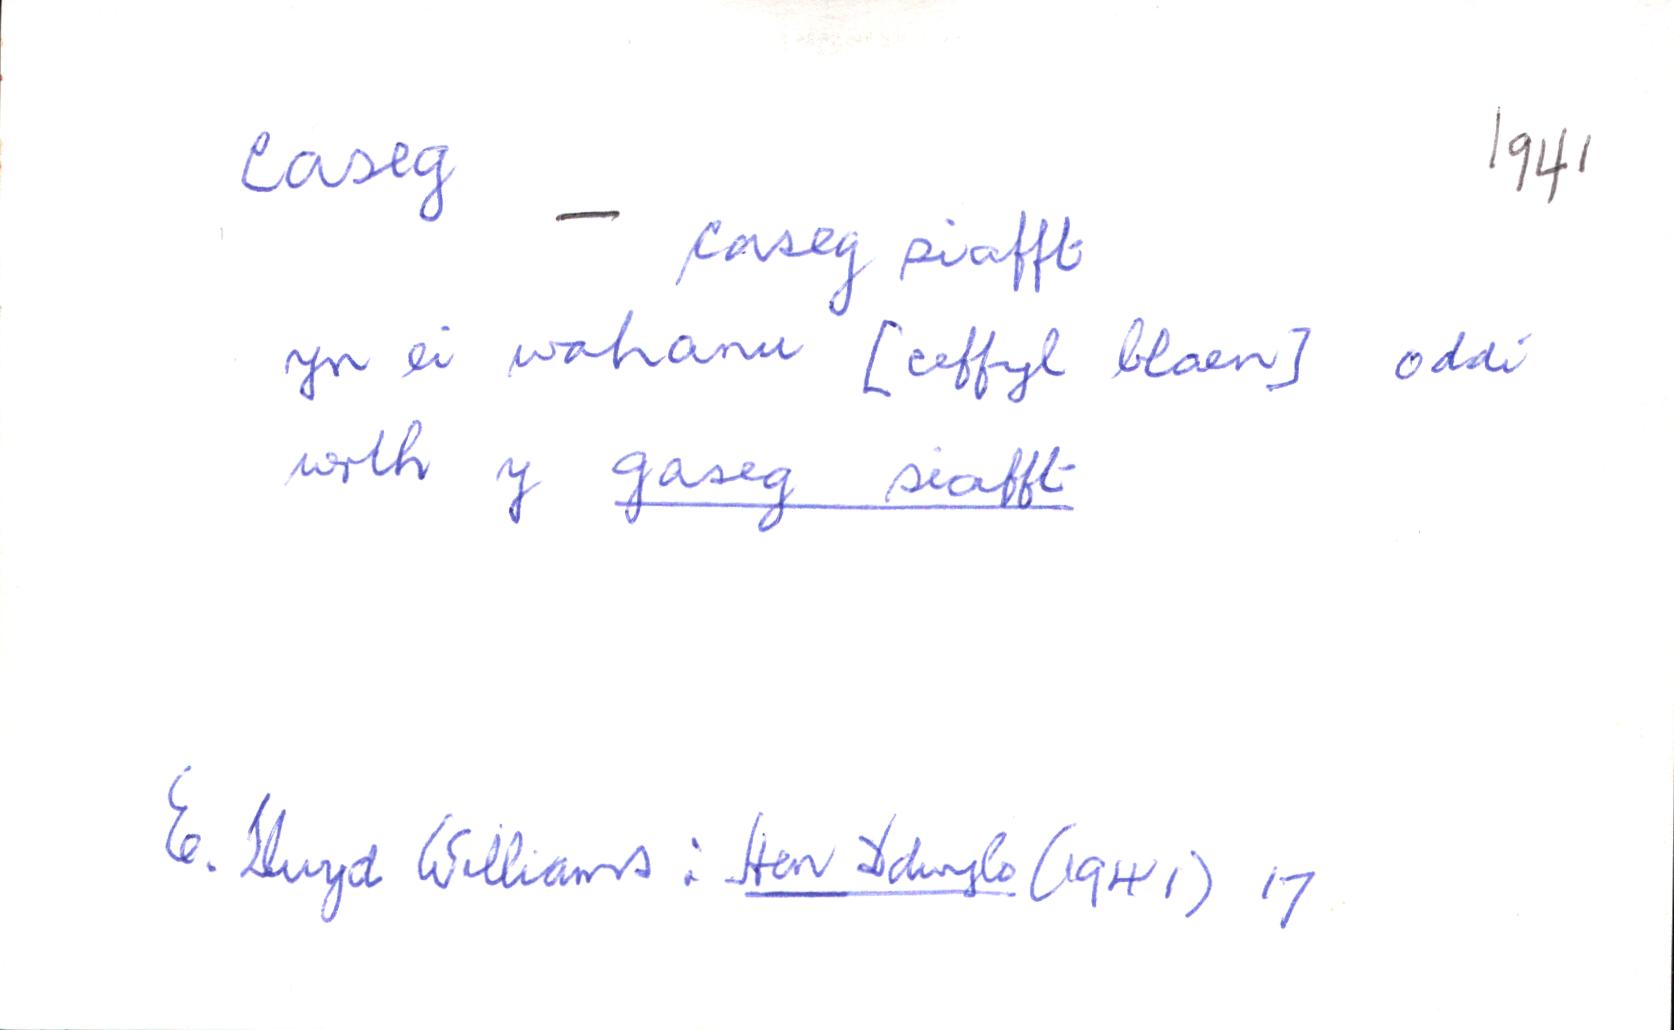 caseg
1941
— caseg siafft
yn ei wahanu [ceffyl blaen] oddi
wrth y gaseg siafft
E. Llwyd Williams : Hen Ddwylo (1941) 17